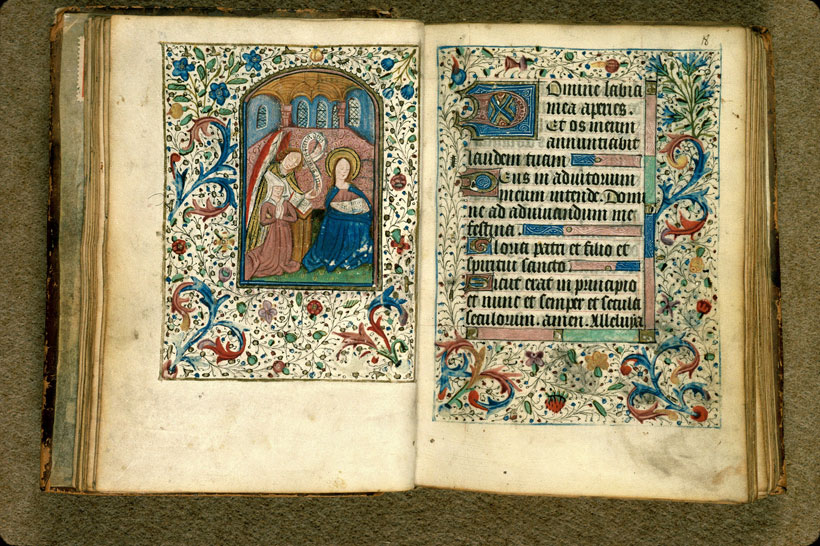 18
Domine labia
mea aperies.
Et os meum
annunciabit
laudem tuam
Deus in adiutorium
meum intende. Domi
ne ad adiuuandum me
festina
Gloria patri et filio et
spiritui sancto
Sicut erat in principio
et nunc et semper et secula
seculorum. amen. Alleluya